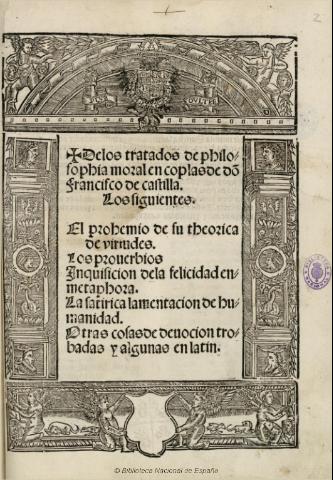 2
PLVS OVLTRE
✠Delos tratados de philo-
sophia moral en coplas de dõ
Francisco de castilla.
Los siguientes.
El prohemio de su theorica
de virtudes.
Los prouerbios
Inquisicion dela felicidad en
metaphora.
La satirica lamentacion de hu-
manidad.
Otras cosas de deuocion tro-
badas y algunas en latin.
© Biblioteca Nacional de España